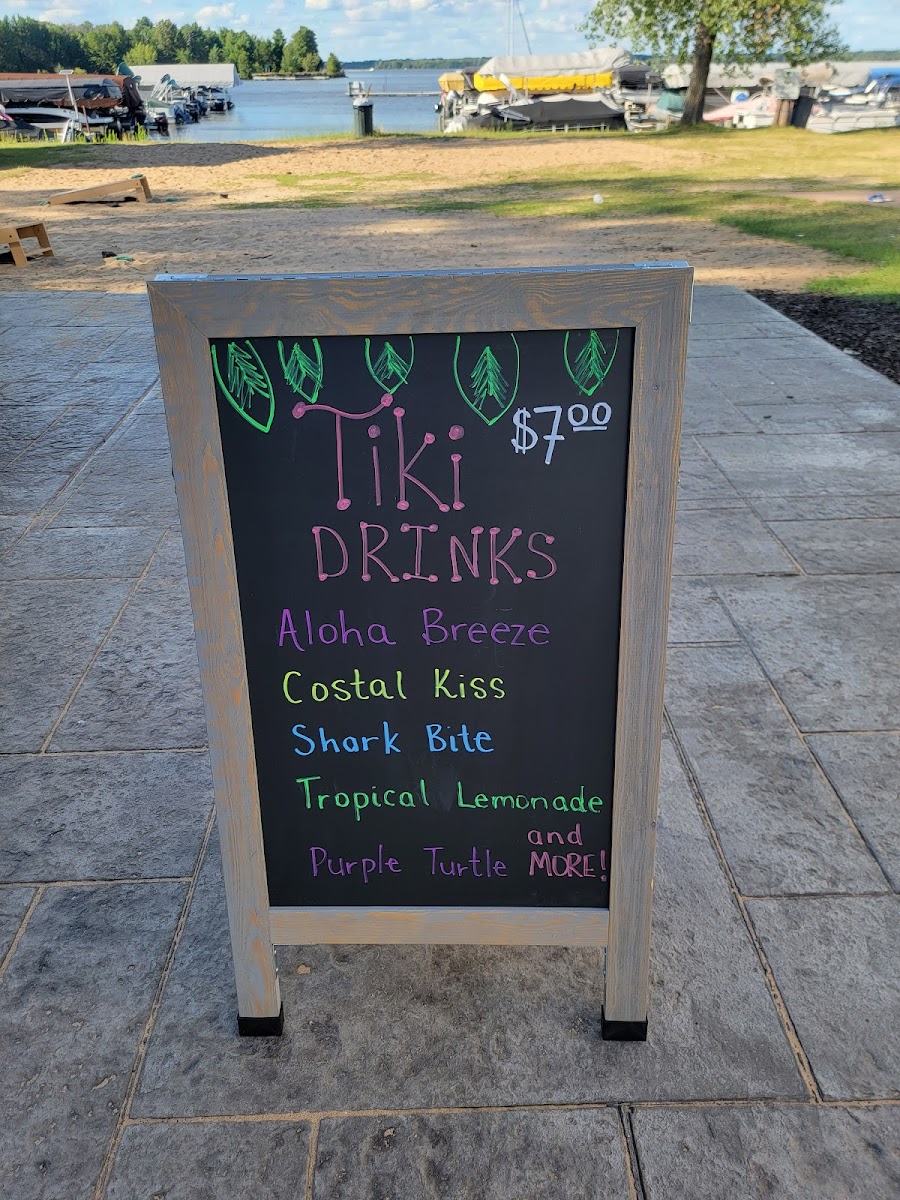 Tiki $7.00
DRINKS
Aloha Breeze
Costal Kiss
Shark Bite
Tropical Lemonade
Purple Turtle and MORE!